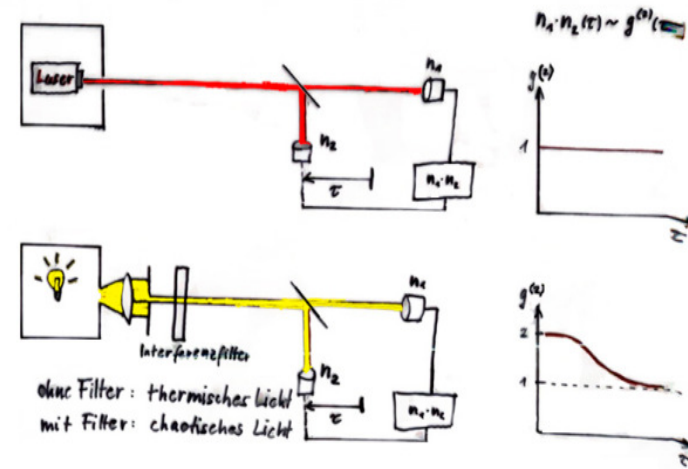 n₁·n₂(τ) ~ g⁽²⁾(τ
Laser
n₁
n₂
τ
n₁·n₂
g⁽²⁾
1
τ
Interferenzfilter
n₁
n₂
τ
n₁·n₂
g⁽²⁾
2
1
τ
ohne Filter: thermisches Licht
mit Filter: chaotisches Licht